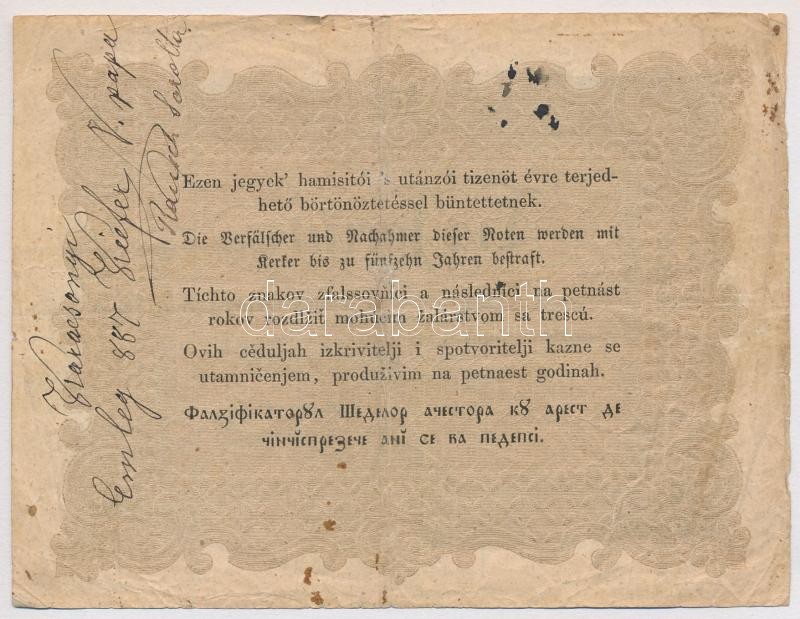 Karácsonyi
Emleg 887 Kiefer V. papa
Rausch Sarolta
Ezen jegyek’ hamisitói ’s utánzói tizenöt évre terjed-
hető börtönöztetéssel büntettetnek.
Die Verfälscher und Nachahmer dieser Noten werden mit
Kerker bis zu fünfzehn Jahren bestraft.
Tíchto znakov zfalssovňíci a následňíci na petnást
rokov rozdlžiť mohúcim žalárstvom sa trescú.
Ovih cěduljah izkrivitelji i spotvoritelji kazne se
utamničenjem, produživim na petnaest godinah.
Фалзіфікаторꙋл Шеделор ачестора кꙋ арест де
чінчіспрезече анї се ва педепсі.
darabanth